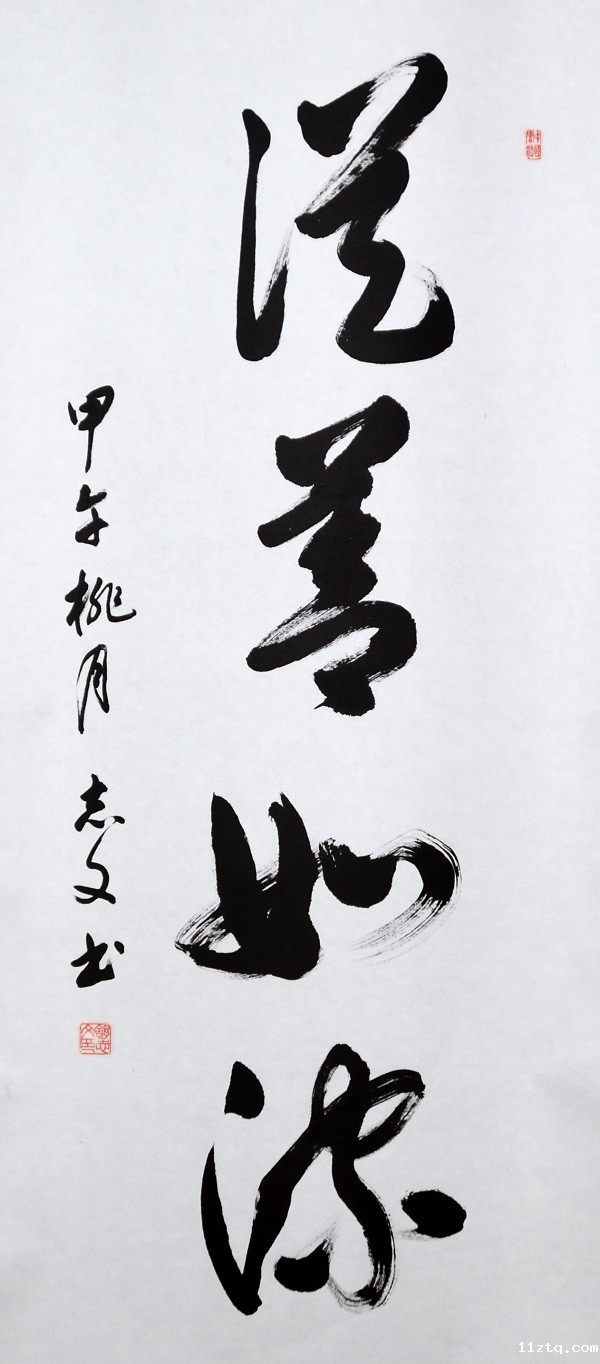 從善如流
甲午桃月 志文书
11ztq.com